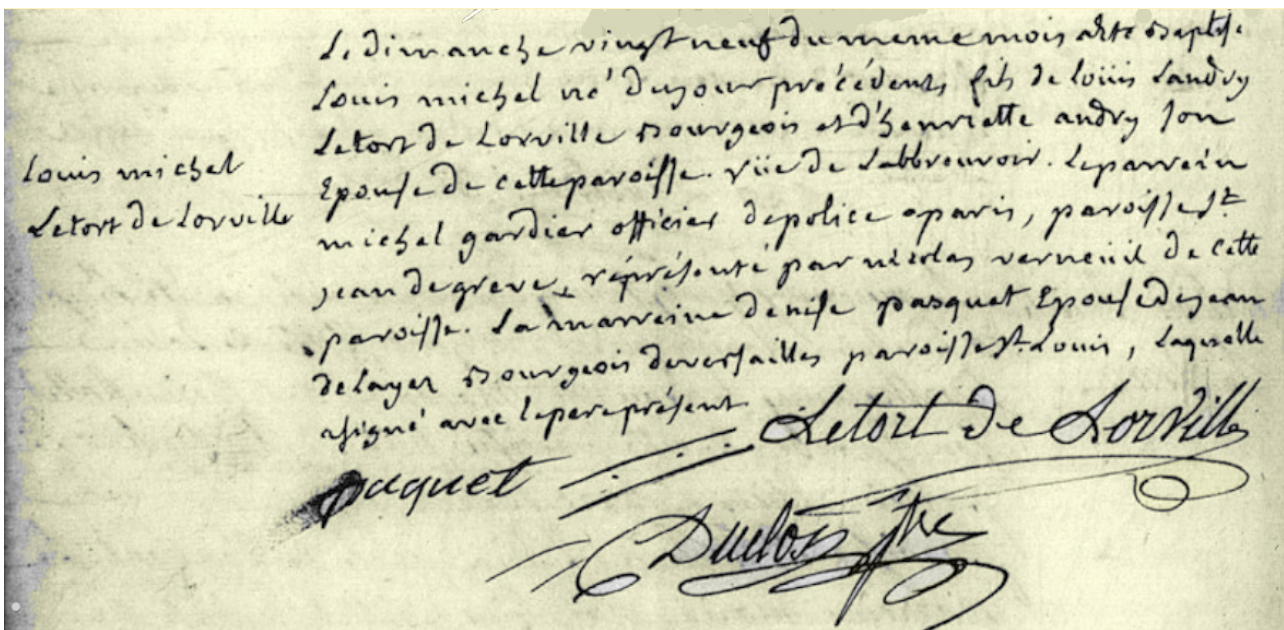 Le dimanche vingt neuf du meme mois a été Baptisé
Louis michel né du jour précédent, fils de loüis Landry
Letort de Lorville Bourgeois et d'henriette andry son
Louis michel
Epouse de cette paroisse. rüe de Labbreuvoir. Le parrein
Letort de Lorville
michel gardier officier de police a paris, paroisse st.
jean de greve, réprésenté par nicolas verneuil de cette
paroisse. La marreine denise pasquet Epouse de jean
delayer Bourgeois de versailles paroisse st. Louis, Laquelle
a signé avec le pere présent
Letort de Lorville
paquet
Duclos ptre